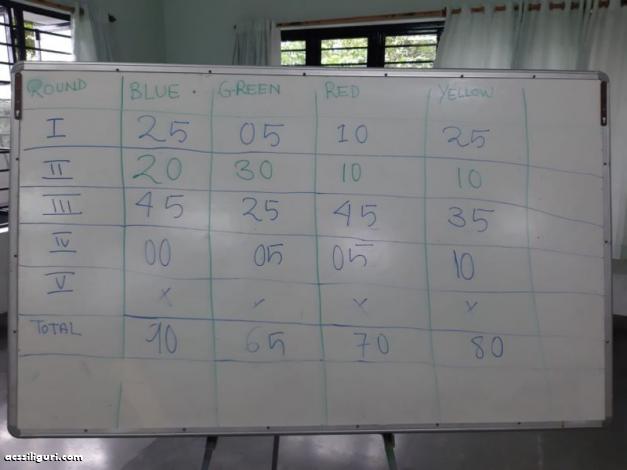 ROUND BLUE. GREEN RED YELLOW
I 25 05 10 25
II 20 30 10 10
III 45 25 45 35
IV 00 05 05 10
V x x x x
TOTAL 90 65 70 80
acssiliguri.com